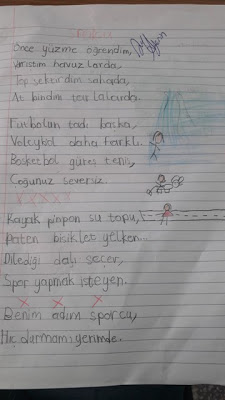 SPORCU
Önce yüzme öğrendim,
Yarıştım havuzlarda,
Top sektirdim sahada,
At bindim tay larda.
Futbolun tadı başka,
Voleybol daha farklı.
Basketbol güreş tenis,
Çoğunuz seversiz.
x x x x x
Kayak pinpon su topu,
Paten bisiklet yelken...
Dilediği dalı seçer,
Spor yapmak isteyen.
x x x
Benim adım sporcu,
Hiç durmam yerimde.